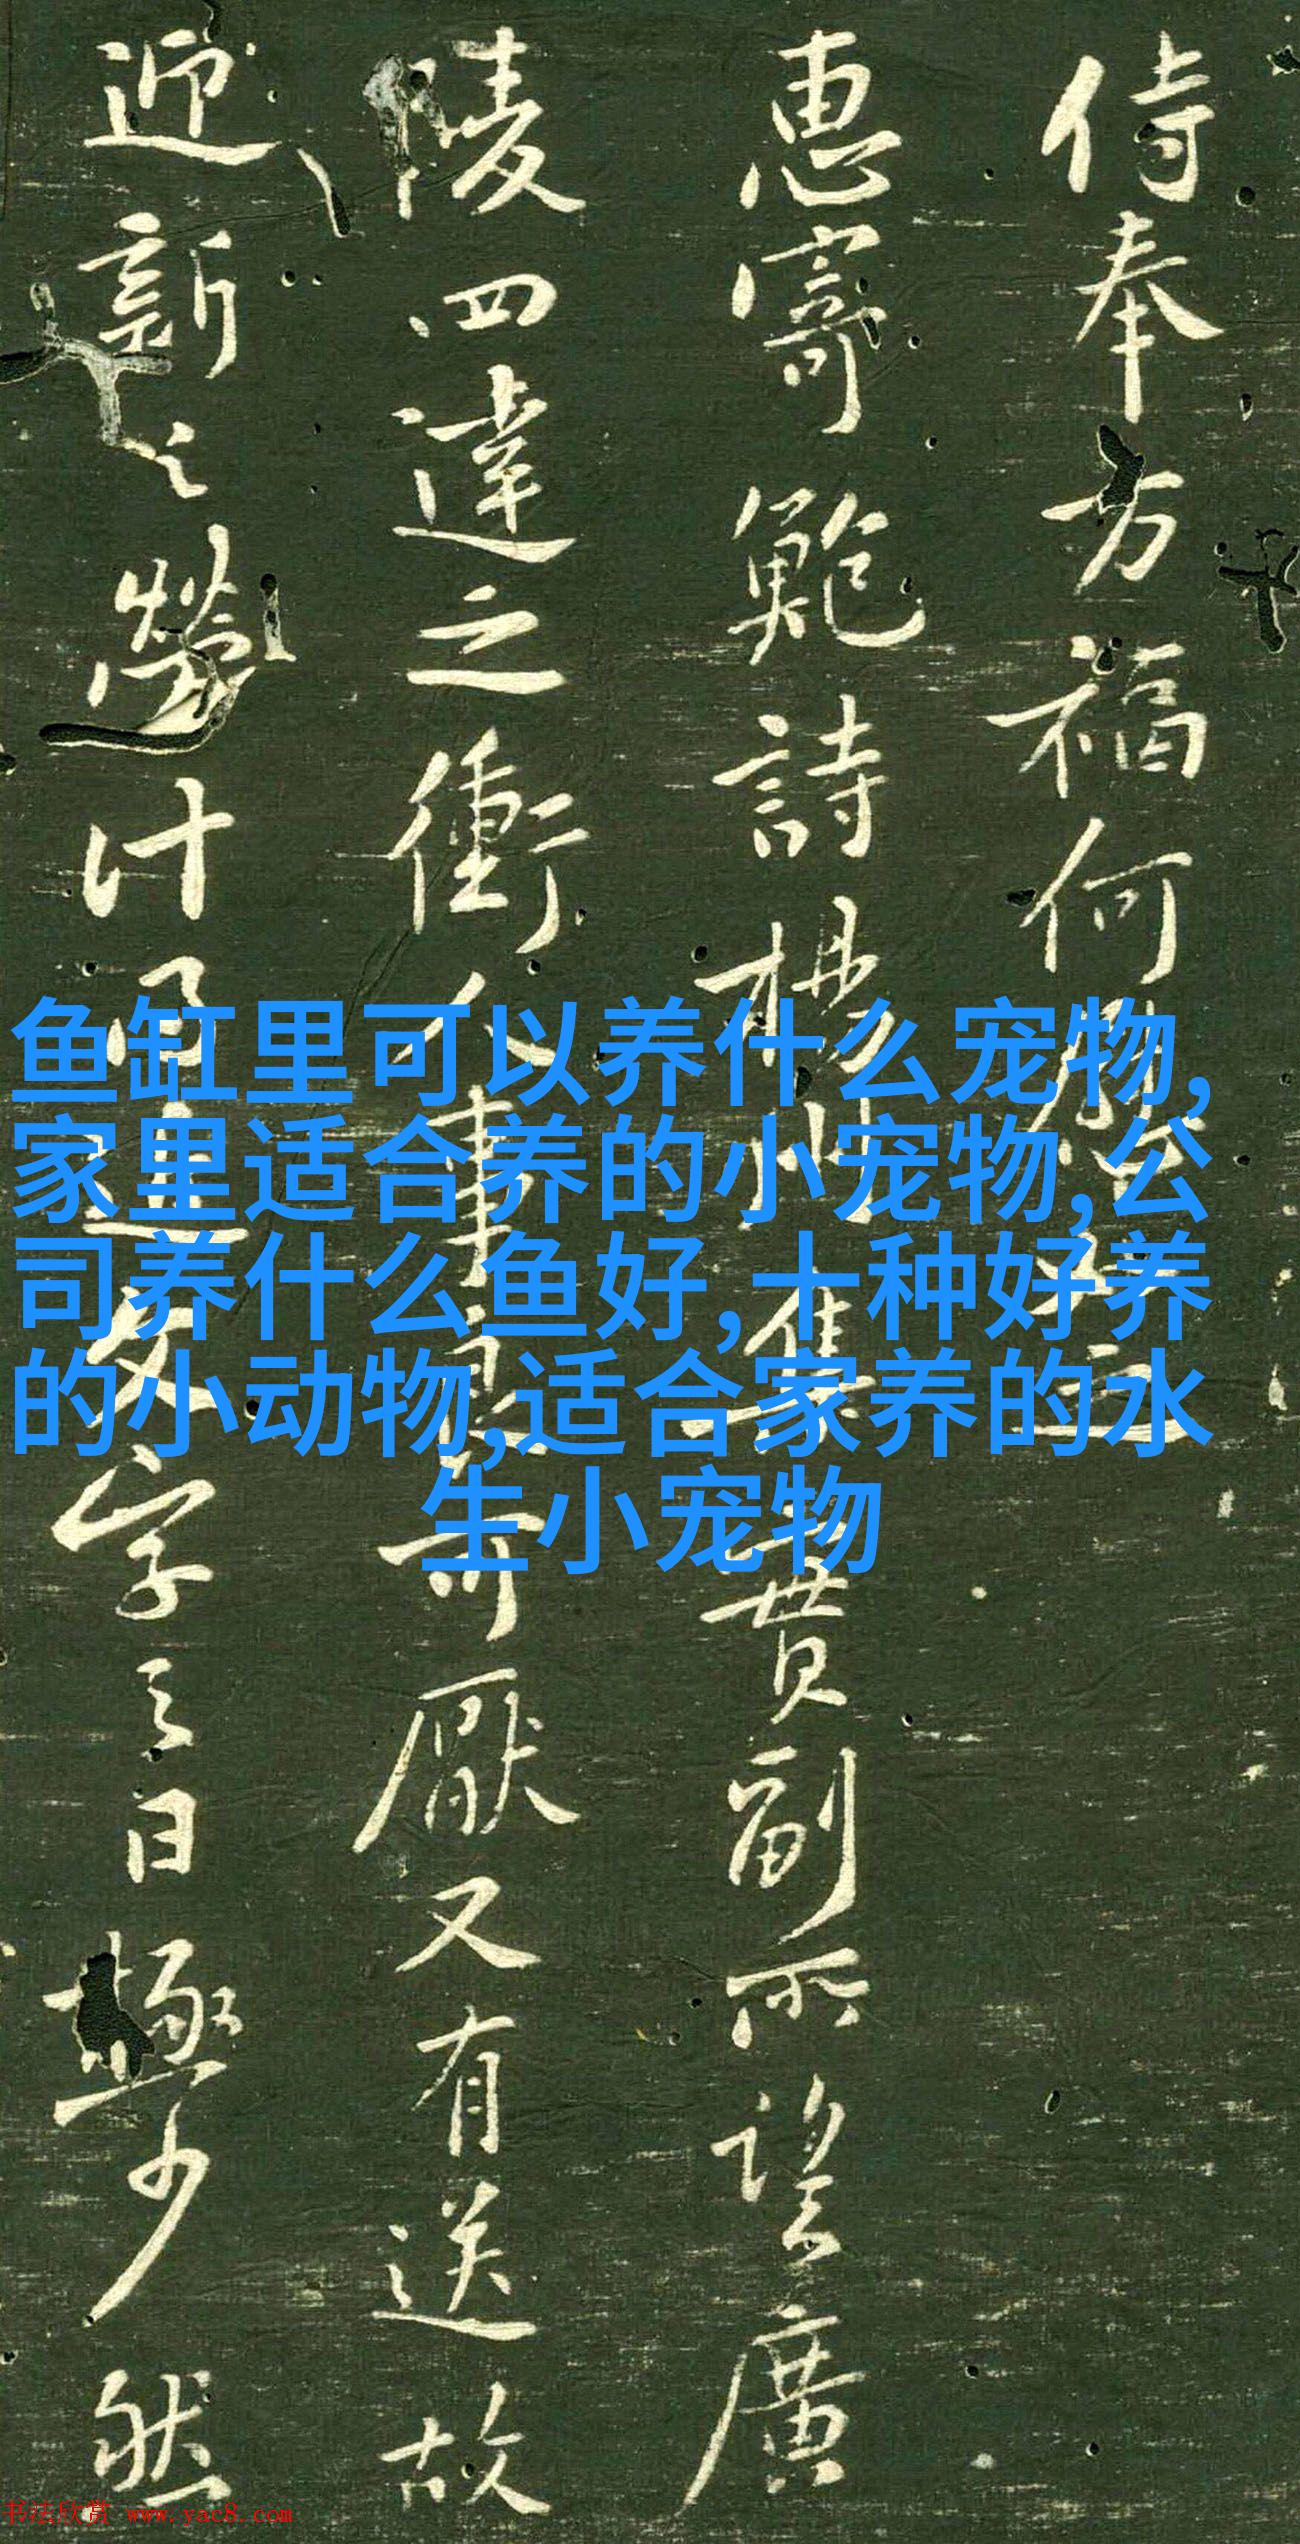 侍奉万福何
惠寄鲍詩楊州舊貫副所望廣
陵四達之衝人事良可厭又有送故
迎新之勞計
文字之日極少然
鱼缸里可以养什么宠物,
家里适合养的小宠物,公
司养什么鱼好,十种好养
的小动物,适合家养的水
生小宠物
书法欣赏 www.yac8.com